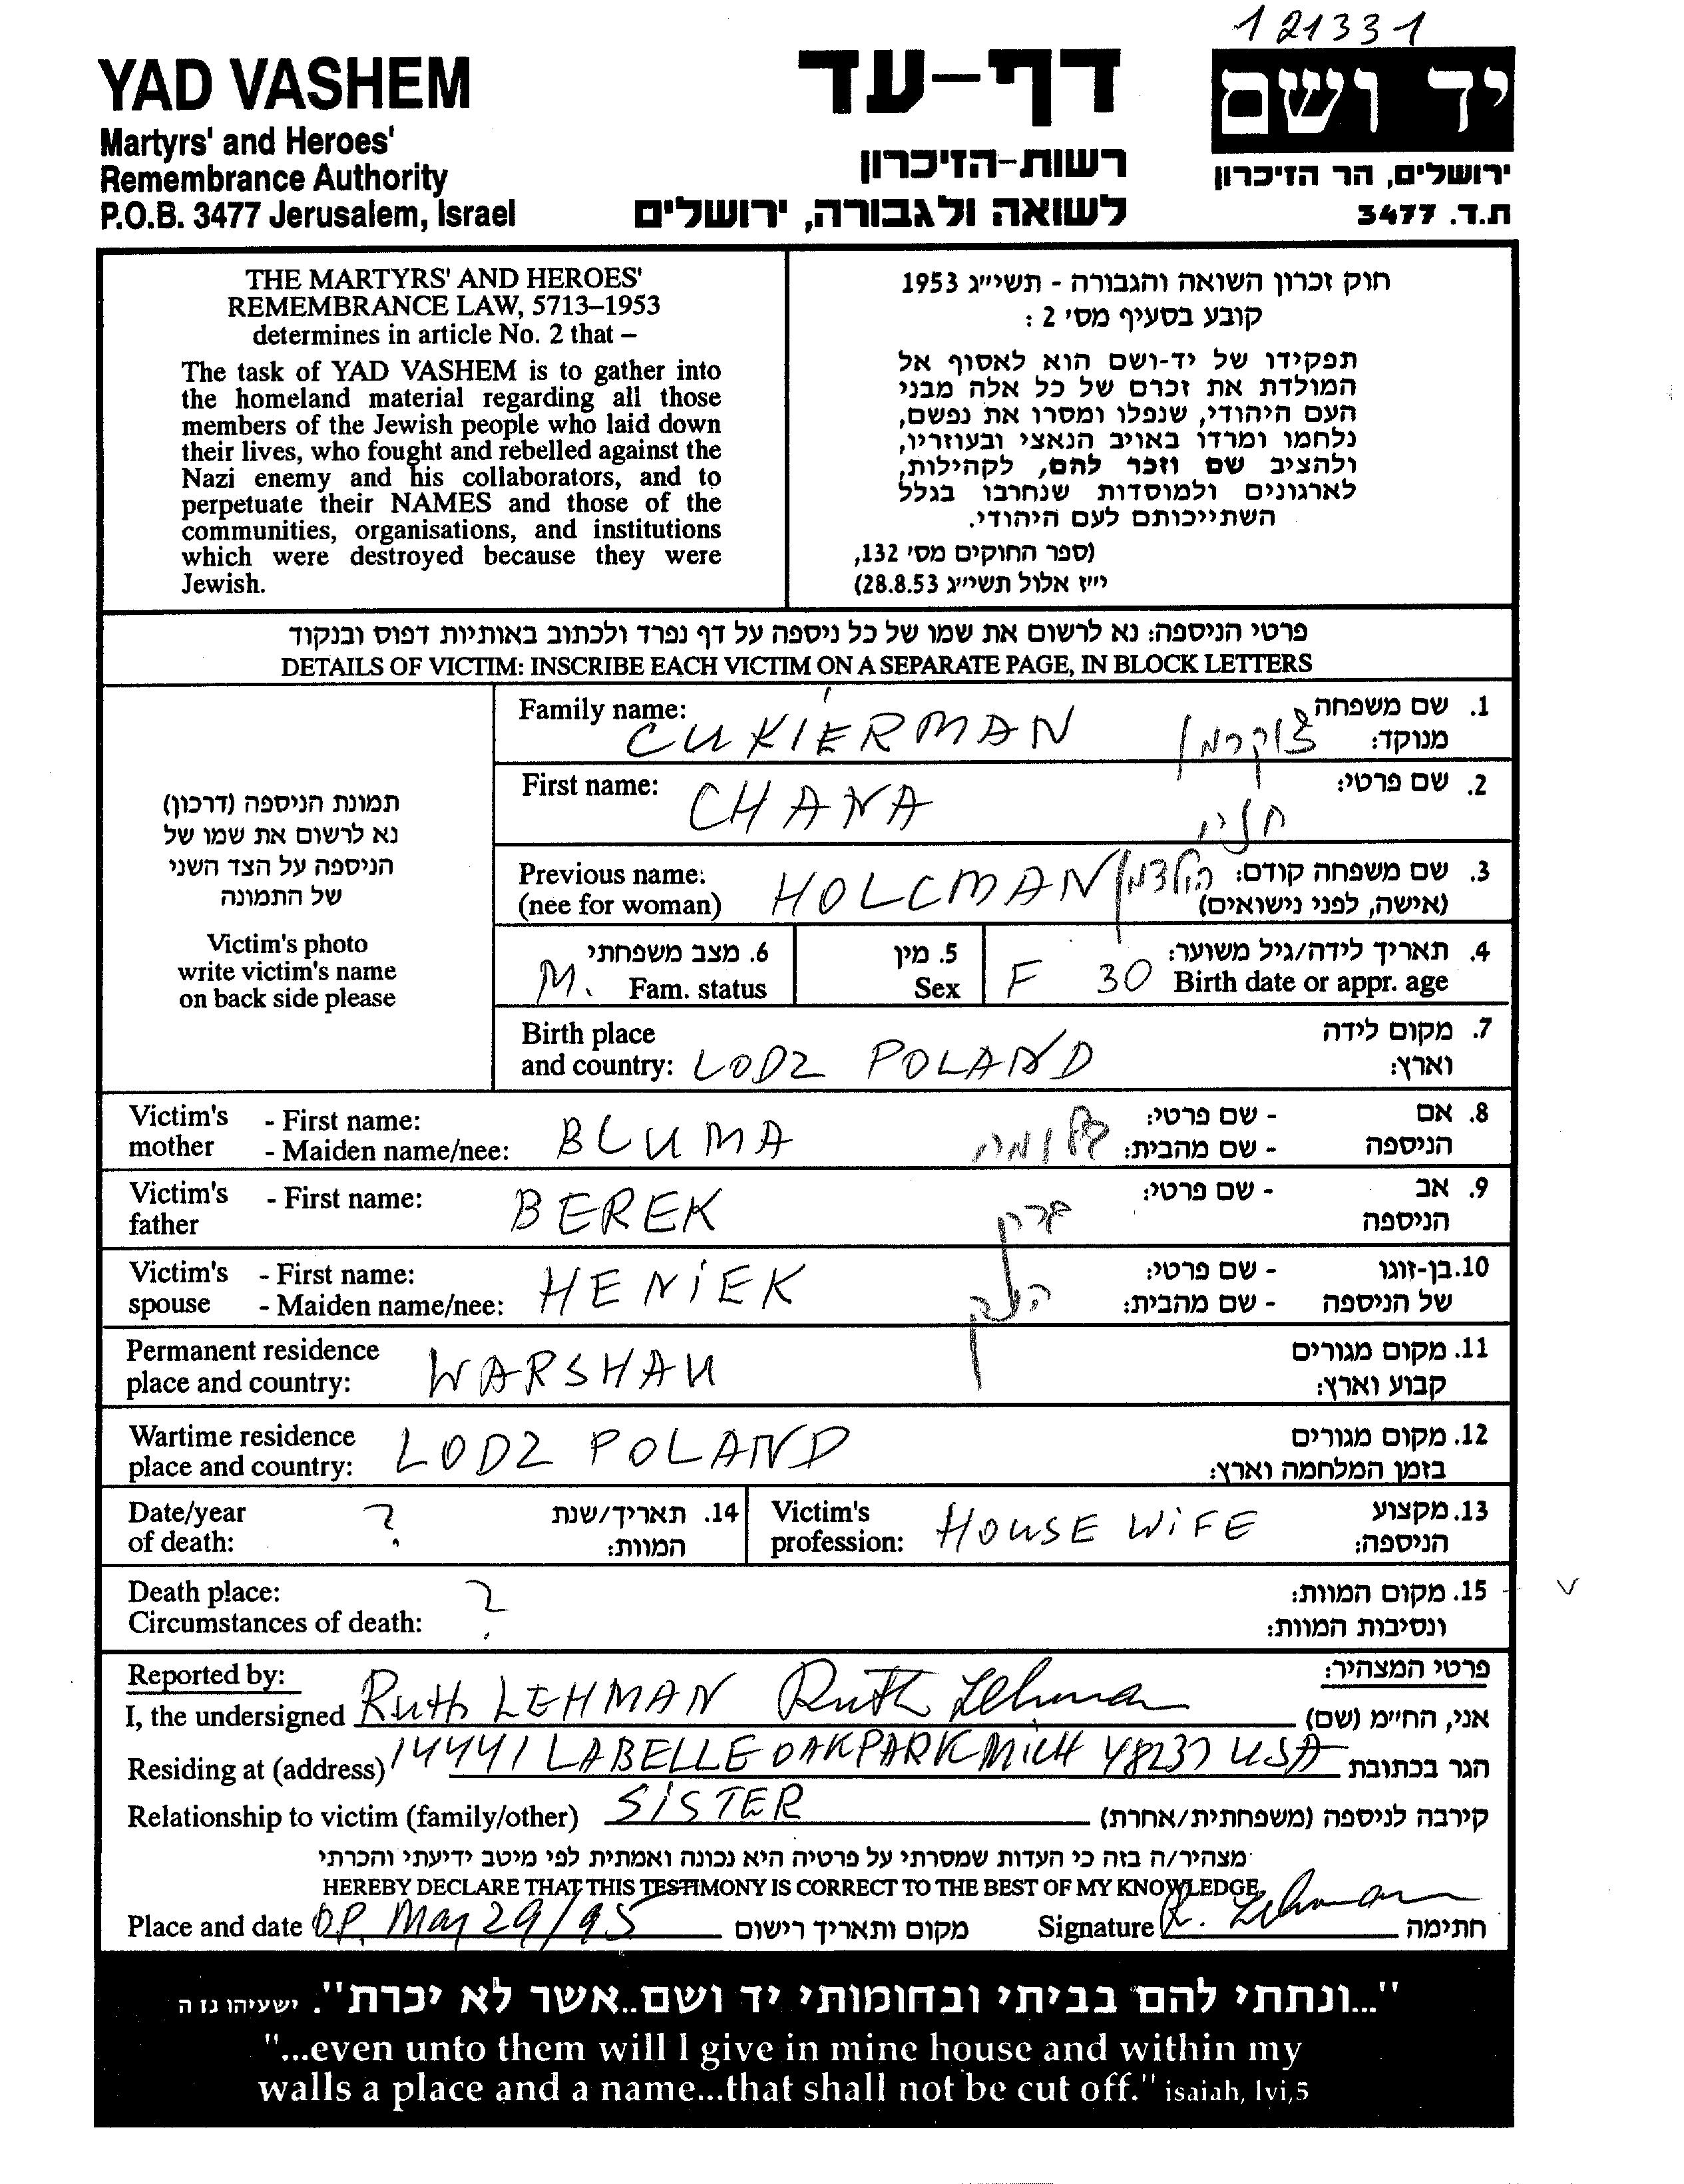 121331
YAD VASHEM
Martyrs' and Heroes'
Remembrance Authority
P.O.B. 3477 Jerusalem, Israel
דף-עד
רשות-הזיכרון
לשואה ולגבורה, ירושלים
יד ושם
ירושלים, הר הזיכרון
ת.ד. 3477
THE MARTYRS' AND HEROES'
REMEMBRANCE LAW, 5713–1953
determines in article No. 2 that –
The task of YAD VASHEM is to gather into
the homeland material regarding all those
members of the Jewish people who laid down
their lives, who fought and rebelled against the
Nazi enemy and his collaborators, and to
perpetuate their NAMES and those of the
communities, organisations, and institutions
which were destroyed because they were
Jewish.
חוק זכרון השואה והגבורה - תשי״ג 1953
קובע בסעיף מס׳ 2 :
תפקידו של יד-ושם הוא לאסוף אל
המולדת את זכרם של כל אלה מבני
העם היהודי, שנפלו ומסרו את נפשם,
נלחמו ומרדו באויב הנאצי ובעוזריו,
ולהציב שם וזכר להם, לקהילות,
לארגונים ולמוסדות שנחרבו בגלל
השתייכותם לעם היהודי.
(ספר החוקים מס׳ 132,
י״ז אלול תשי״ג 28.8.53)
פרטי הניספה: נא לרשום את שמו של כל ניספה על דף נפרד ולכתוב באותיות דפוס ובנקוד
DETAILS OF VICTIM: INSCRIBE EACH VICTIM ON A SEPARATE PAGE, IN BLOCK LETTERS
תמונת הניספה (דרכון)
נא לרשום את שמו של
הניספה על הצד השני
של התמונה
Victim's photo
write victim's name
on back side please
Family name: CUKIERMAN צוקרמן 1. שם משפחה
מנוקד:
First name: CHANA חניה 2. שם פרטי:
Previous name: HOLCMAN הולצמן 3. שם משפחה קודם:
(nee for woman) (אישה, לפני נישואים)
M. 6. מצב משפחתי 5. מין F 30 4. תאריך לידה/גיל משוער:
Fam. status Sex Birth date or appr. age
Birth place 7. מקום לידה
and country: LODZ POLAND וארץ:
Victim's - First name: - שם פרטי: 8. אם
mother - Maiden name/nee: BLUMA בלומה - שם מהבית: הניספה
Victim's - First name: BEREK ברק - שם פרטי: 9. אב
father הניספה
Victim's - First name: HENIEK - שם פרטי: 10. בן-זוגו
spouse - Maiden name/nee: - שם מהבית: של הניספה
Permanent residence WARSHAU 11. מקום מגורים
place and country: קבוע וארץ:
Wartime residence LODZ POLAND 12. מקום מגורים
place and country: בזמן המלחמה וארץ:
Date/year ? 14. תאריך/שנת Victim's HOUSE WIFE 13. מקצוע
of death: המוות: profession: הניספה:
Death place: ? 15. מקום המוות:
Circumstances of death: ונסיבות המוות:
Reported by: פרטי המצהיר:
I, the undersigned Ruth LEHMAN Ruth Lehman אני, החי״מ (שם)
Residing at (address) 14441 LABELLE OAKPARK MICH 48237 USA הגר בכתובת
Relationship to victim (family/other) SISTER קירבה לניספה (משפחתית/אחרת)
מצהיר/ה בזה כי העדות שמסרתי על פרטיה היא נכונה ואמתית לפי מיטב ידיעתי והכרתי
HEREBY DECLARE THAT THIS TESTIMONY IS CORRECT TO THE BEST OF MY KNOWLEDGE
Place and date O.P. May 29/95 מקום ותאריך רישום Signature R. Lehman חתימה
"...ונתתי להם בביתי ובחומותי יד ושם..אשר לא יכרת". ישעיהו נו ה
"...even unto them will I give in mine house and within my
walls a place and a name...that shall not be cut off." isaiah, lvi,5